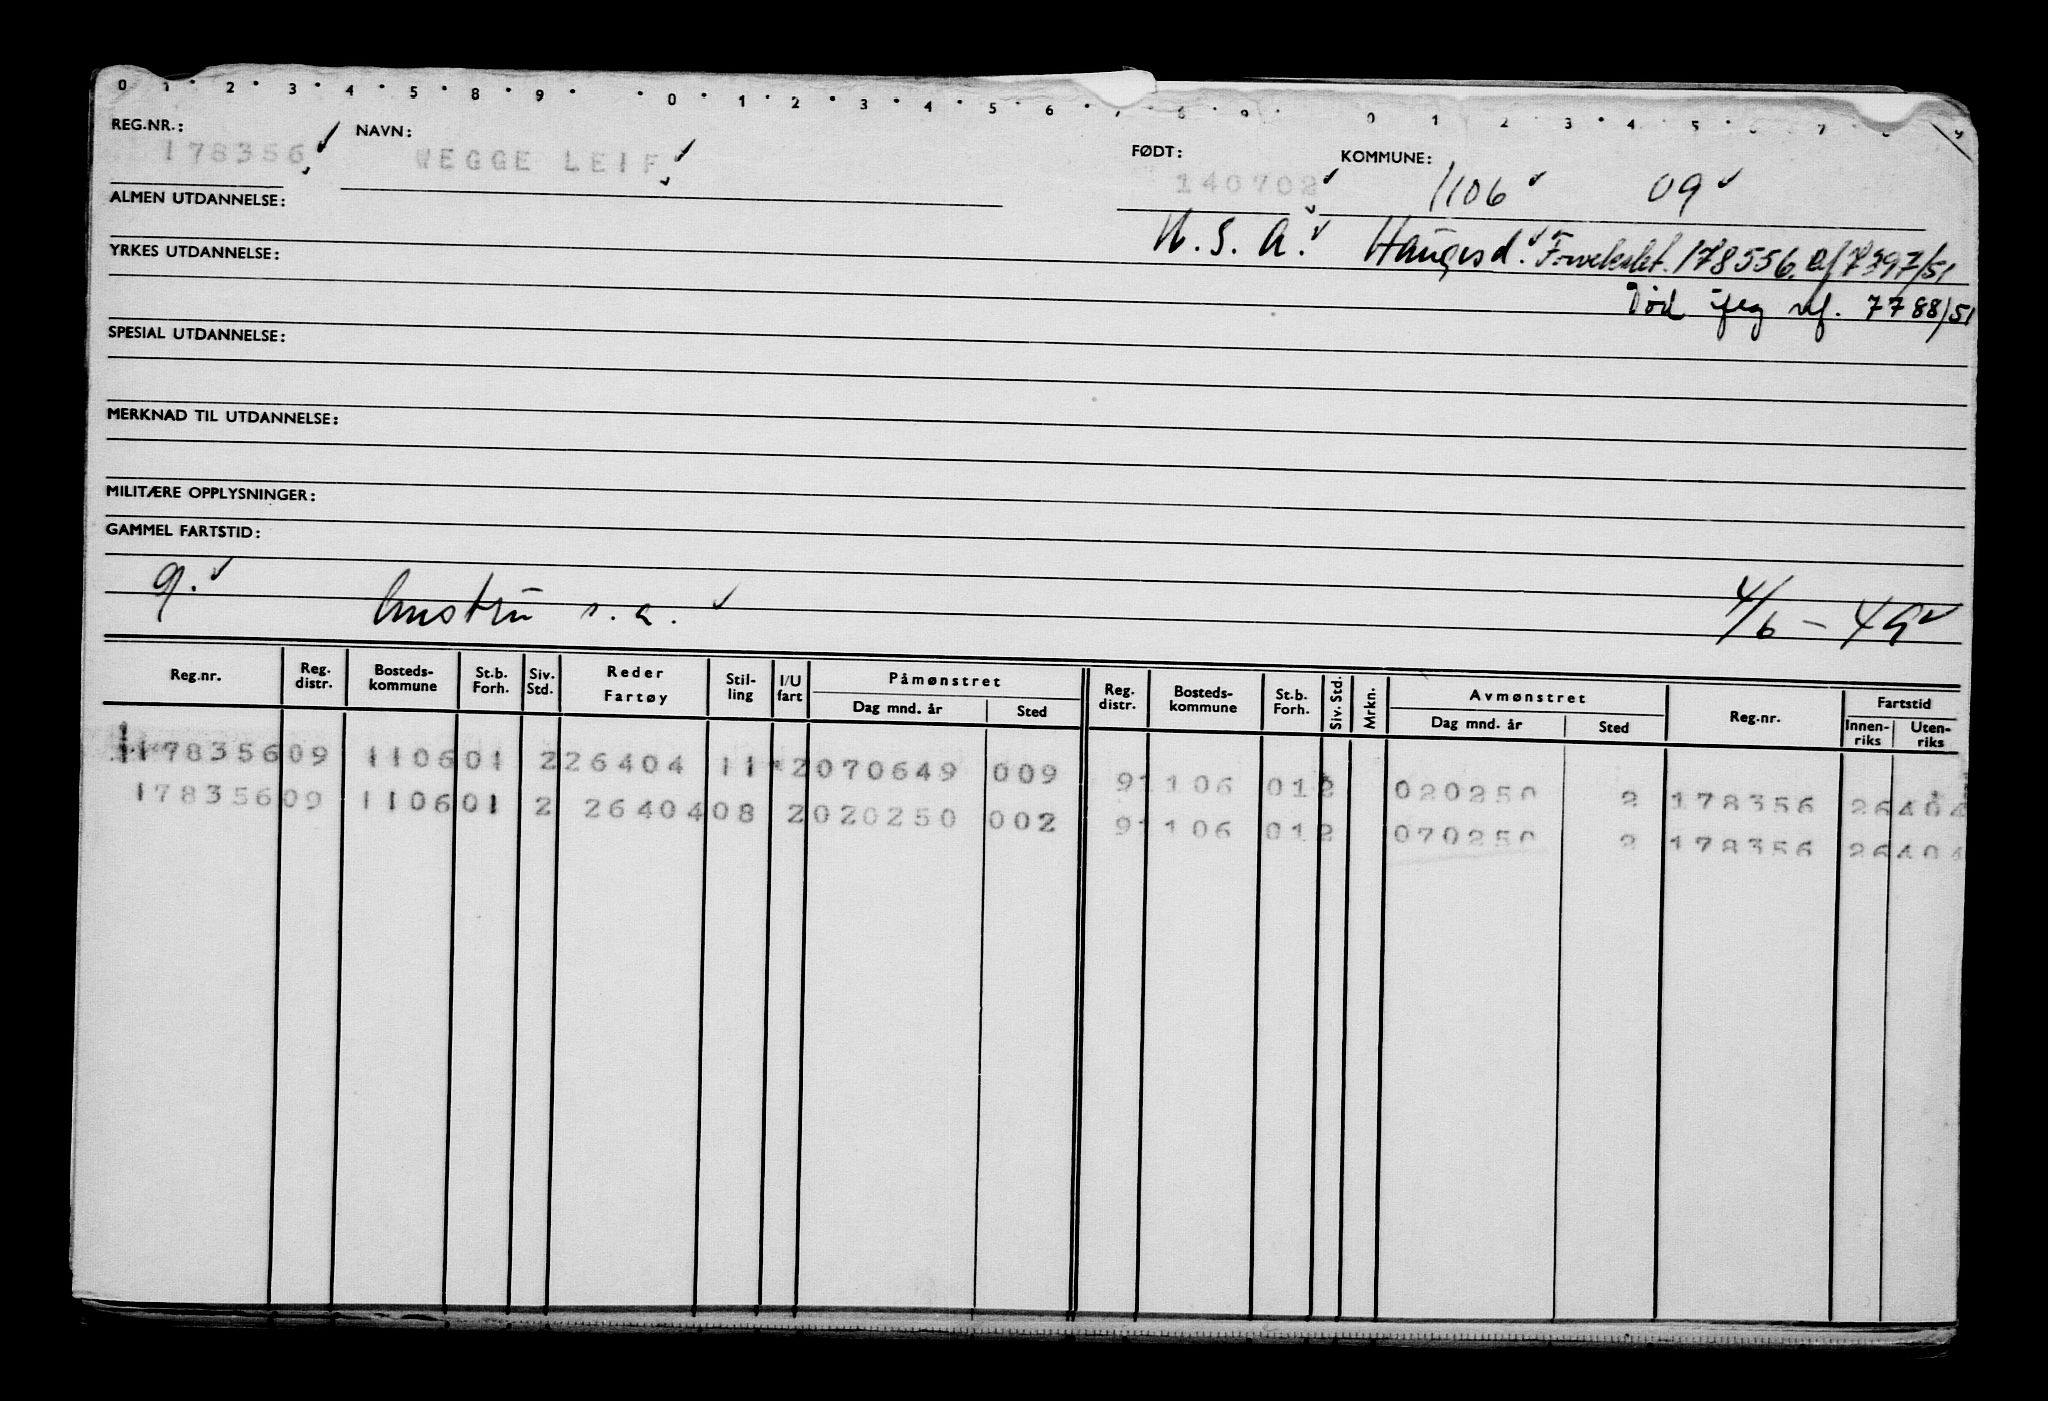 0 1 2 3 4 5 8 9 0 1 2 3 4 5 6 7 8 9 0 1 2 3 4 5 6 7 8 9
REG.NR.: NAVN: FØDT: KOMMUNE:
178356 WEGGE LEIF 140702 1106 09
ALMEN UTDANNELSE:
U.S.A. Haugesd. Forvekslet. 178556. Rf 7397/51
YRKES UTDANNELSE:
Død jfeg rf. 7788/51
SPESIAL UTDANNELSE:
MERKNAD TIL UTDANNELSE:
MILITÆRE OPPLYSNINGER:
GAMMEL FARTSTID:
9. hustru s.a. 4/6-49
Reg.nr. Reg. distr. Bosteds-kommune St.b. Forh. Siv. Std. Reder Fartøy Stil-ling I/U fart Påmønstret Dag mnd. år Sted Reg. distr. Bosteds-kommune St.b. Forh. Siv. Std. Mrkn. Avmønstret Dag mnd. år Sted Reg.nr. Fartstid Innen-riks Uten-riks
178356 09 1106 01 2 26404 11 2 070649 009 9 1106 01 2 020250 2 178356 26404
178356 09 1106 01 2 26404 08 2 020250 002 9 1106 01 2 070250 2 178356 26404